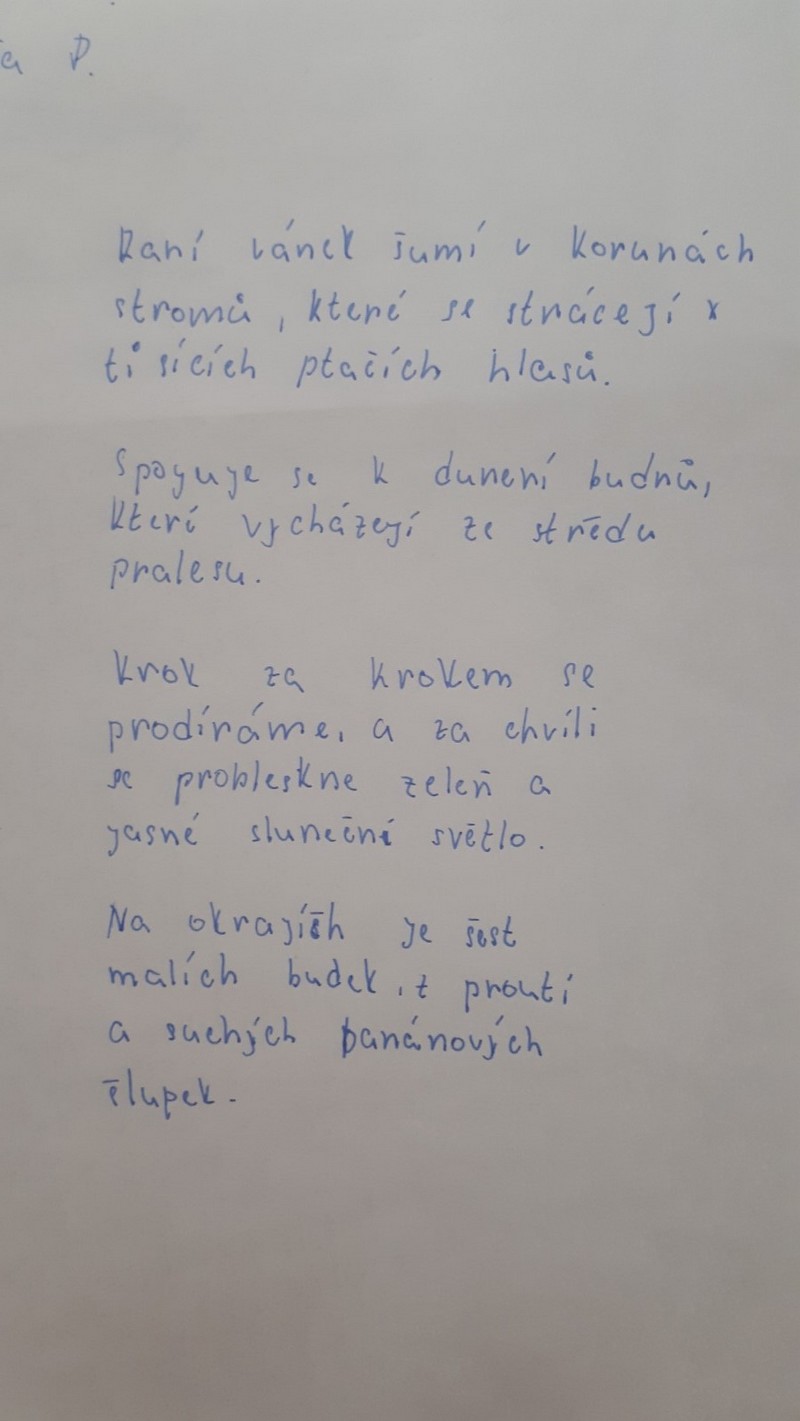 a P.
Raní vánek šumí v korunách
stromů, které se strácejí v
tisících ptačích hlasů.
Spojuje se k dunení budnů,
kteri vycházejí ze strědu
pralesu.
Krok za krokem se
prodíráme, a za chvíli
se probleskne zeleň a
jasné sluneční světlo.
Na okrajích je šest
malích budek, z proutí
a suchých banánových
šlupek.